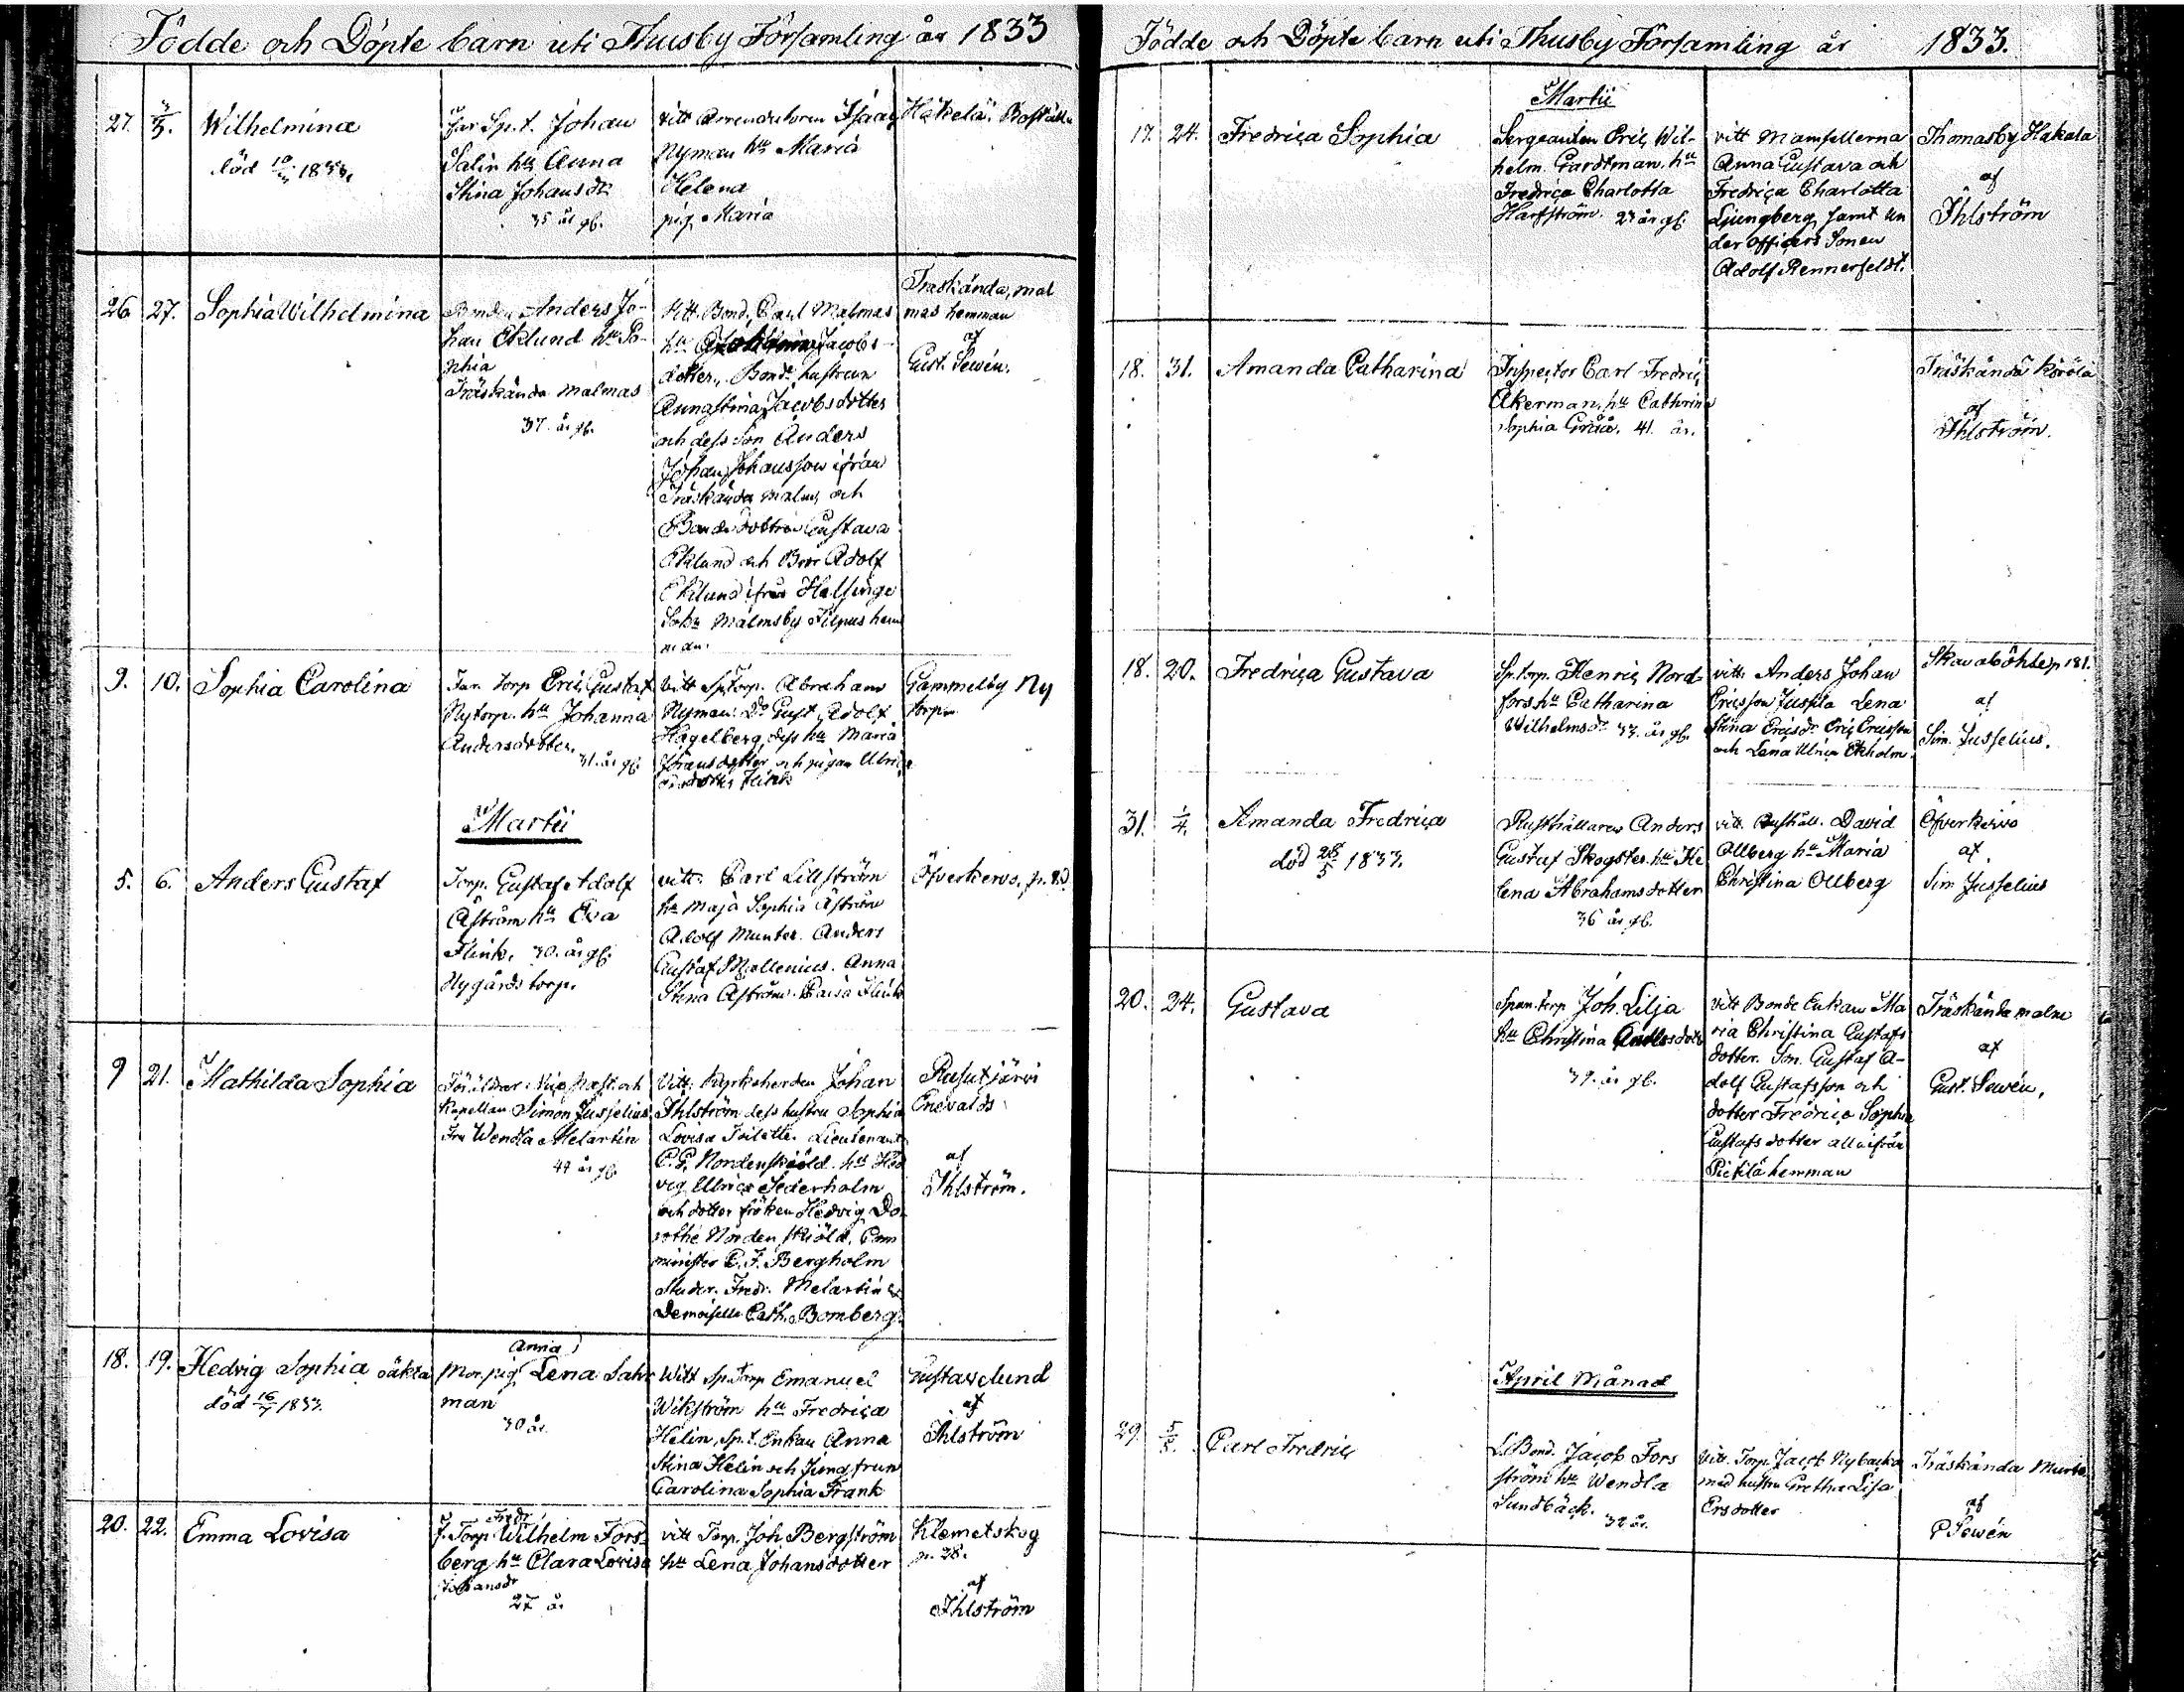 Födde och Döpte barn uti Thusby Församling år 1833
27. 3/3. Wilhelmina
död 1833.
Johan
Salin hu Anna
Stina Johansdr
35 år gl.
vitt Arrendatoren Isaac
Nyman hu Maria
Helena
pig. Maria
Häkelä Boställe
26. 27. Sophia Wilhelmina
Bonden Anders Jo-
han Eklund hu So-
phia
Träskända Malmas
37. år gl.
Vitt. Bond. Carl Malmas
hu Jacobs-
dotter, Bonde hustrun
Annastina Jacobsdotter
och dess son Anders
Johan Johansson ifrån
Träskända Malms och
Bonde dottren Gustava
Eklund och Bror Adolf
Eklund ifrån Helsinge
Sokn Malmsby Filpus hem
man.
Träskända, mal
mas hemman
af
Gust. Sewén.
9. 10. Sophia Carolina
Torp Eric Gustaf
Nytorp. hu Johanna
Andersdotter.
31. år gl.
Vitt Sp. Torp. Abraham
Nyman. Do Gust Adolf
Hagelberg, dess hu Maria
Johansdotter och pigan Ulrica
Flink
Gammelby Ny
torp
Martii
5. 6. Anders Gustaf
Torp. Gustaf Adolf
Åström hu Eva
Flink. 30. år gl.
Nygårds torp.
vitt. Carl Lillström
hu Maja Sophia Åström
Adolf Munter. Anders
Gustaf Mollenius. Anna
Stina Åström. Caisa Flink
Öfverkervo. p.
9 21. Mathilda Sophia
Föräldrar: Vice Past. och
Kapellan Simon Jusselius
Fru Wendla Melartin
44 år gl.
Vitt. Kyrkoherden Johan
Ihlström dess hustru Sophia
Lovisa Toilette. Lieutenant
C. G. Nordenskiöld. hu Hed
vig Ulrica Sederholm
och dotter fröken Hedvig Do-
rothe Nordenskiöld, Com
minister C. F. Bergholm
Studer. Fredr. Melartin &
Demoiselle Cath. Bomberg.
Rusutjärvi
Enevalds
af
Ihlström.
18. 19. Hedvig Sophia oäkta
död 16/7 1833.
Anna
Mor. pig. Lena Sahl
man
30 år.
Witt Sp. Torp Emanuel
Wikström hu Fredrica
Helin, Sp. t. Enkan Anna
Stina Helin och Jungfrun
Carolina Sophia Frank
Gustavelund
af
Ihlström
20. 22. Emma Lovisa
Fredr
f. Torp. Wilhelm Fors-
berg hu Clara Lovisa
Johansdr
27 år
vitt Torp. Joh Bergström
hu Lena Johansdotter
Klemetskog
p. 28.
af
Ihlström
Födde och Döpte barn uti Thusby Församling år 1833.
Martii
17. 24. Fredrica Sophia
Sergeanten Eric Wil-
helm Gardtman. hu
Fredrica Charlotta
Harfström. 23 år gl.
vitt Mamsellerna
Anna Gustava och
Fredrica Charlotta
Ljungberg samt un
der officers Sonen
Adolf Rennerfeldt.
Thomasby Hakala
af
Ihlström
18. 31. Amanda Catharina
Inspector Carl Fredric
Åkerman, hu Cathrina
Sophia Gråå. 41. år.
Träskända Körola
af
Ihlström.
18. 20. Fredrica Gustava
Sp. torp. Henric Nord-
fors hu Catharina
Wilhelmsdr 33. år gl.
vitt. Anders Johan
Ericsson Jussila Lena
Stina Ericsdr Eric Ericsson
och Lena Ulrica Ekholm.
Skavaböhle p 181.
af
Sim. Jusselius.
31. 1/4. Amanda Fredrica
död 28/5 1833.
Rusthållaren Anders
Gustaf Skogster. hu He
lena Abrahamsdotter
36 år gl.
vitt. Rusthåll. David
Ollberg hu Maria
Christina Ollberg
Öfverkervo
af
Sim Jusselius
20. 24. Gustava
torp Joh. Lilja
hu Christina Andersdotr
39. år gl.
vitt Bonde Enkan Ma
ria Christina Gustafs
dotter. Son. Gustaf A-
dolf Gustafsson och
dotter Fredrica Sophia
Gustafs dotter alla ifrån
hemman
Träskända malm
af
Gust. Sewén.
April Månad
29. 5/5. Carl Fredric
L. Bond. Jacob Fors
ström hu Wendla
Sundbäck. 32 år.
Vitt. Torp. Jacob Nybacka
med hustru Gretha Lisa
Ersdotter
Träskända
af
G Sewén